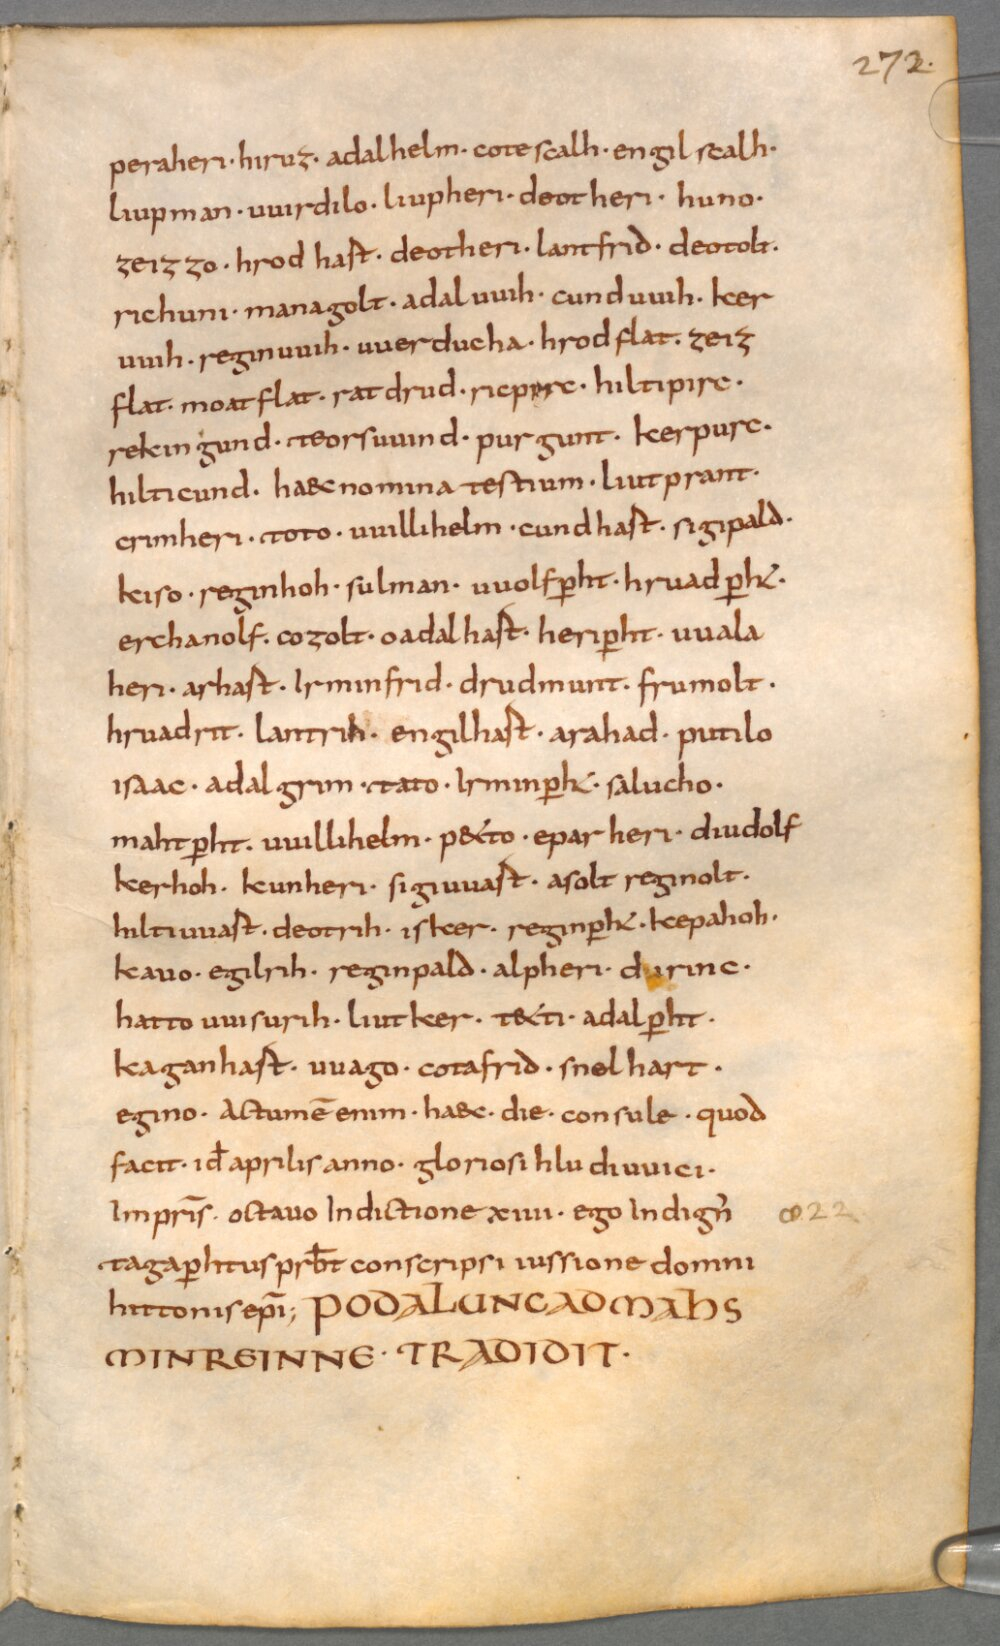 272.
peraheri · hiruz · adalhelm · cotescalh · engilscalh ·
liupman · uuirdilo · liupheri · deotheri · huno ·
zeizzo · hrodhast · deotheri · lantfrid · deotolt ·
richuni · managolt · adaluuih · cunduuih · ker
uuih · reginuuih · uuerducha · hrodflat · zeiz
flat · moatflat · ratdrud · ricpirc · hiltipirc ·
rekingund · teorsuuind · purgunt · kerpurc ·
hilticund · haec nomina testium · liutprant ·
crimheri · toto · uuillihelm · cundhast · sigipald ·
kiso · reginhoh · sulman · uuolfp̄ht · hruadp̄h̄t ·
erchanolf · cozolt · oadalhast · herip̄ht · uuala
heri · arhast · Irminfrid · drudmunt · frumolt ·
hruadrit · lantrih · engilhast · arahad · putilo
isaac · adalgrim · tato · Irminp̄h̄t · salucho ·
mahtp̄ht · uuillihelm · p&to · eparheri · diudolf
kerhoh · kunheri · sigiuuast · asolt reginolt ·
hiltiuuast · deotrih · isker · reginp̄h̄t · kepahoh ·
kauo · egilrih · reginpald · alpheri · durinc ·
hatto uuisurih · liutker · t&ti · adalp̄ht ·
kaganhast · uuago · cotafrid · snelhart ·
egino · Actum ē enim · haec · die · consule · quod
facit · id̄ aprilis anno · gloriosi hludiuuici ·
Impr̄is · octauo Indictione xiiii · ego Indign̄
tagap̄htus prb̄t conscripsi iussione domni
hittonis ep̄i; PODALUNC AD MAHS
MINREINNE · TRADIDIT ·
822